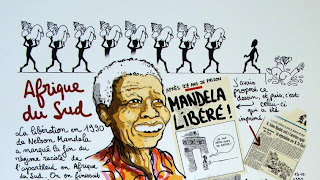 Afrique
du Sud
La libération en 1990
de Nelson Mandela
a marqué la fin du
régime raciste de
l'apartheid en Afrique
du Sud. On en finissait
APRÈS 27 ANS DE PRISON
MANDELA
LIBÉRÉ!
J'avais
proposé ce
dessin, et puis, c'est
celui-ci
qui a été
imprimé.